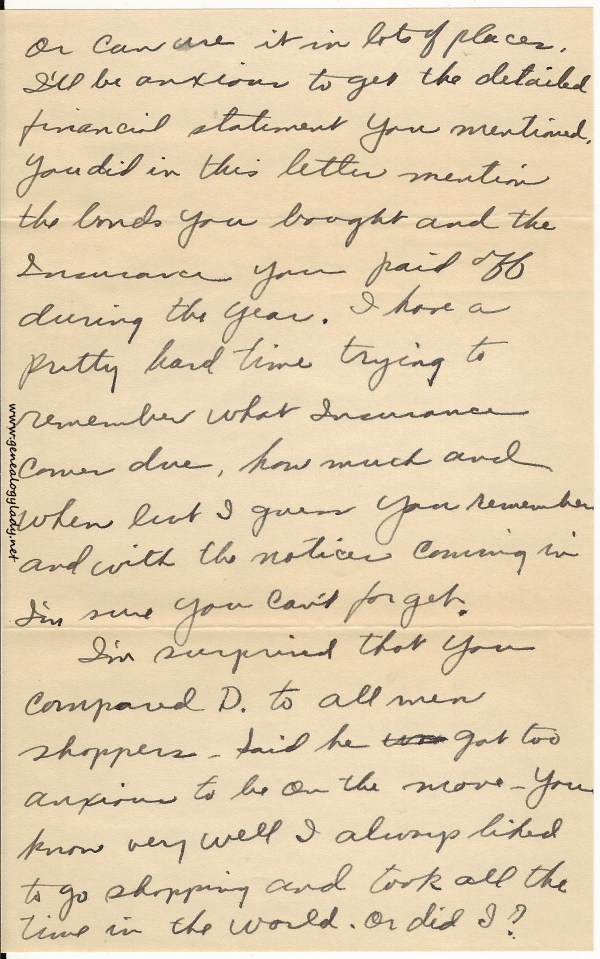 or can use it in lots of places.
I'll be anxious to get the detailed
financial statement you mentioned.
You did in this letter mention
the bonds you bought and the
Insurance you paid off
during the year. I have a
pretty hard time trying to
remember what Insurance
comes due, how much and
when but I guess you remember
and with the notices coming in
I'm sure you can't forget.
I'm surprised that you
compared D. to all men
shoppers - said he was got too
anxious to be on the move - You
know very well I always liked
to go shopping and took all the
time in the world. Or did I?
www.genealogylady.net